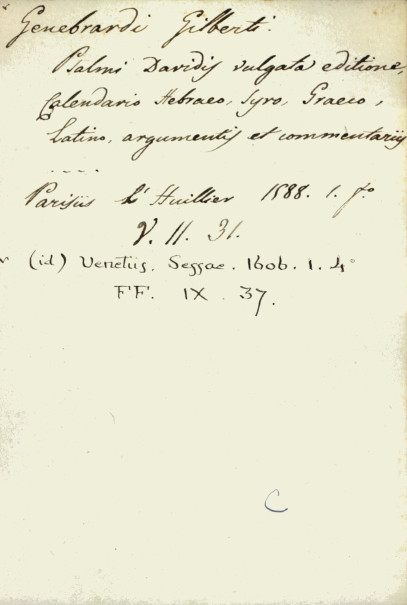 Genebrardi Gilberti.
Psalmi Davidis vulgata editione,
Calendario Hebraeo, Syro, Graeco,
Latino, argumentis et commentariis
....
Parisiis L'Huillier 1588. 1. fo
V. II. 31.
v (id) Venetiis. Sessae. 1606. 1. 4°
FF. IX. 37.
C